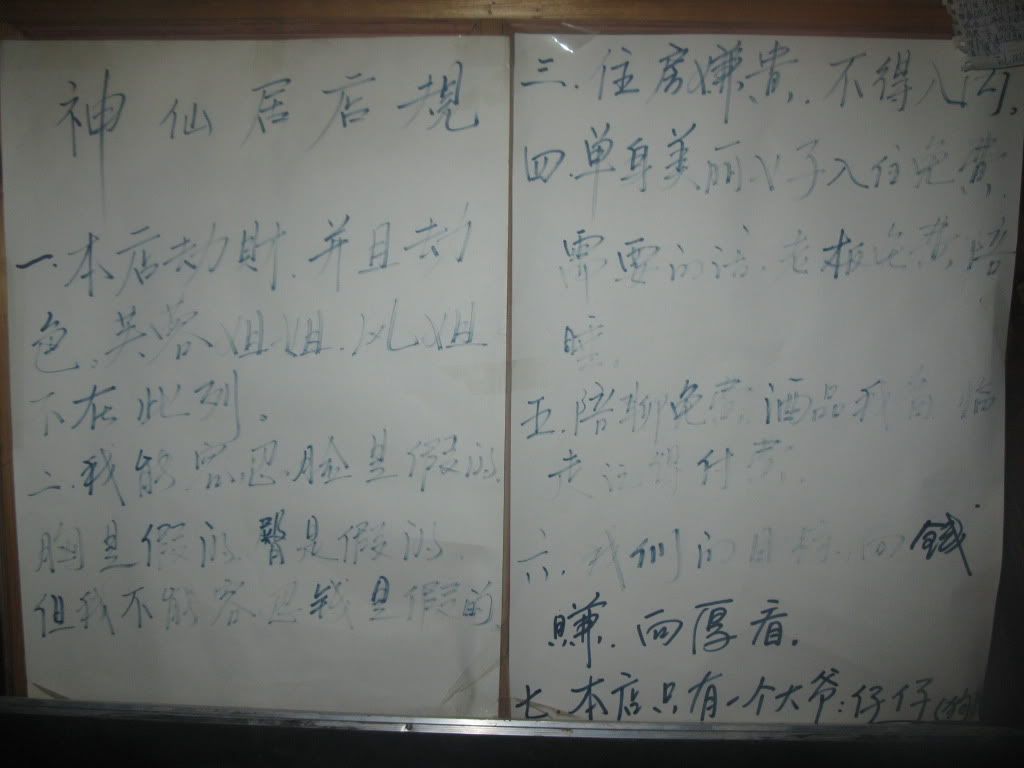 神仙居店规
一.本店劫財.并且劫
色.芙蓉姐姐.凤姐
不在此列。
二.我能容忍.脸是假的.
胸是假的.臀是假的.
但我不能容忍钱是假的.
三.住房嫌贵.不得入内.
四.单身美丽女子入住免费.
需要的话.老板免费陪
睡.
五.陪聊免费.酒品我自
走记得付费.
六.我们的目标.向钱
赚.向厚看.
七.本店只有一个大爷:仔仔(狗